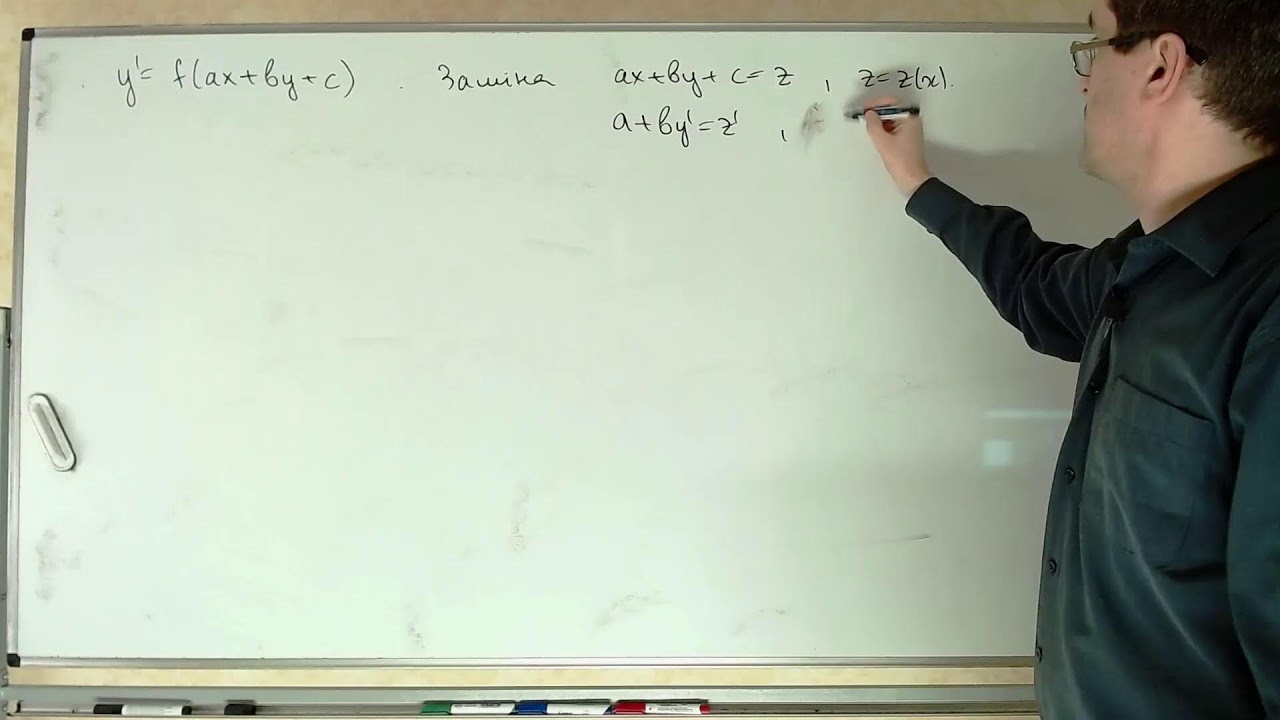 y' = f(ax+by+c) . Заміна ax+by+c=z , z=z(x).
a+by'=z' ,